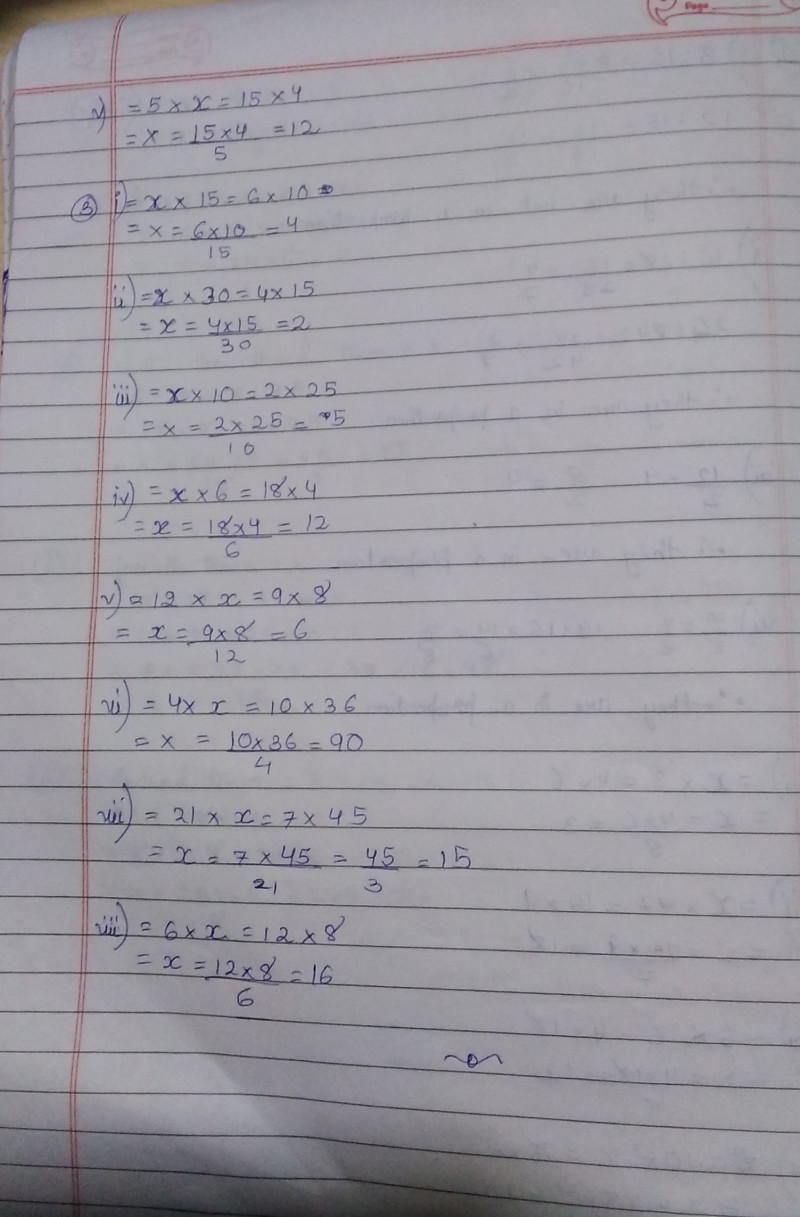 Page
v) = 5 × x = 15 × 4
= x = 15×4/5 = 12
③ i) = x × 15 = 6 × 10
= x = 6×10/15 = 4
ii) = x × 30 = 4 × 15
= x = 4×15/30 = 2
iii) = x × 10 = 2 × 25
= x = 2×25/10 = 5
iv) = x × 6 = 18 × 4
= x = 18×4/6 = 12
v) = 12 × x = 9 × 8
= x = 9×8/12 = 6
vi) = 4 × x = 10 × 36
= x = 10×36/4 = 90
vii) = 21 × x = 7 × 45
= x = 7×45/21 = 45/3 = 15
viii) = 6 × x = 12 × 8
= x = 12×8/6 = 16